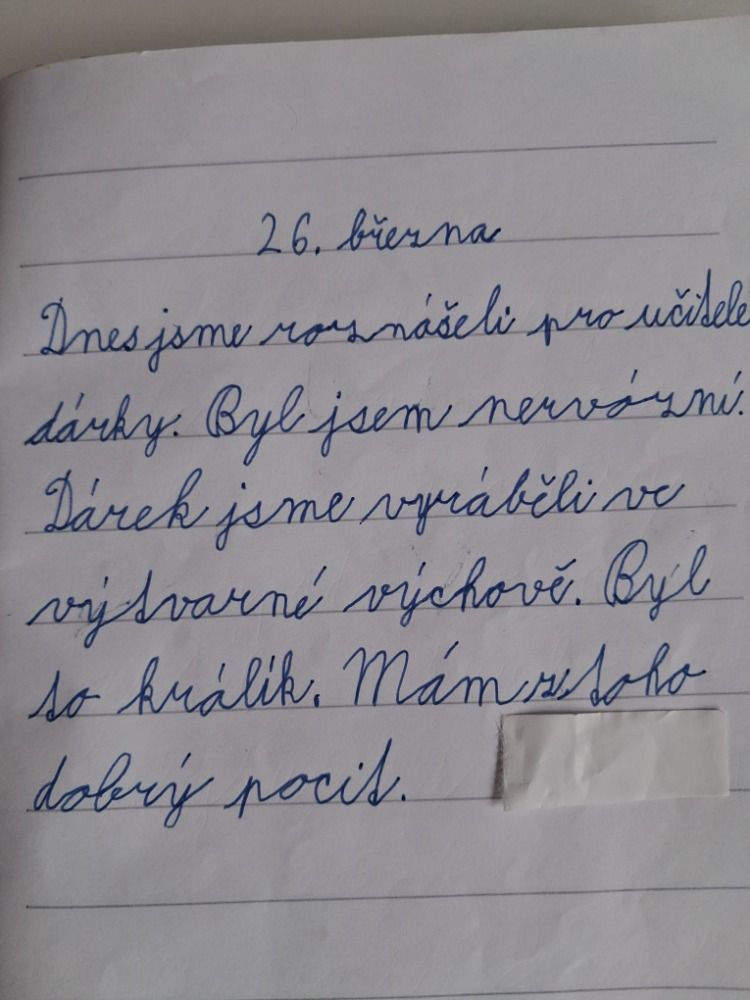 26. března
Dnes jsme roznášeli pro učitele
dárky. Byl jsem nervózní.
Dárek jsme vyráběli ve
výtvarné výchově. Byl
to králík. Mám z toho
dobrý pocit.